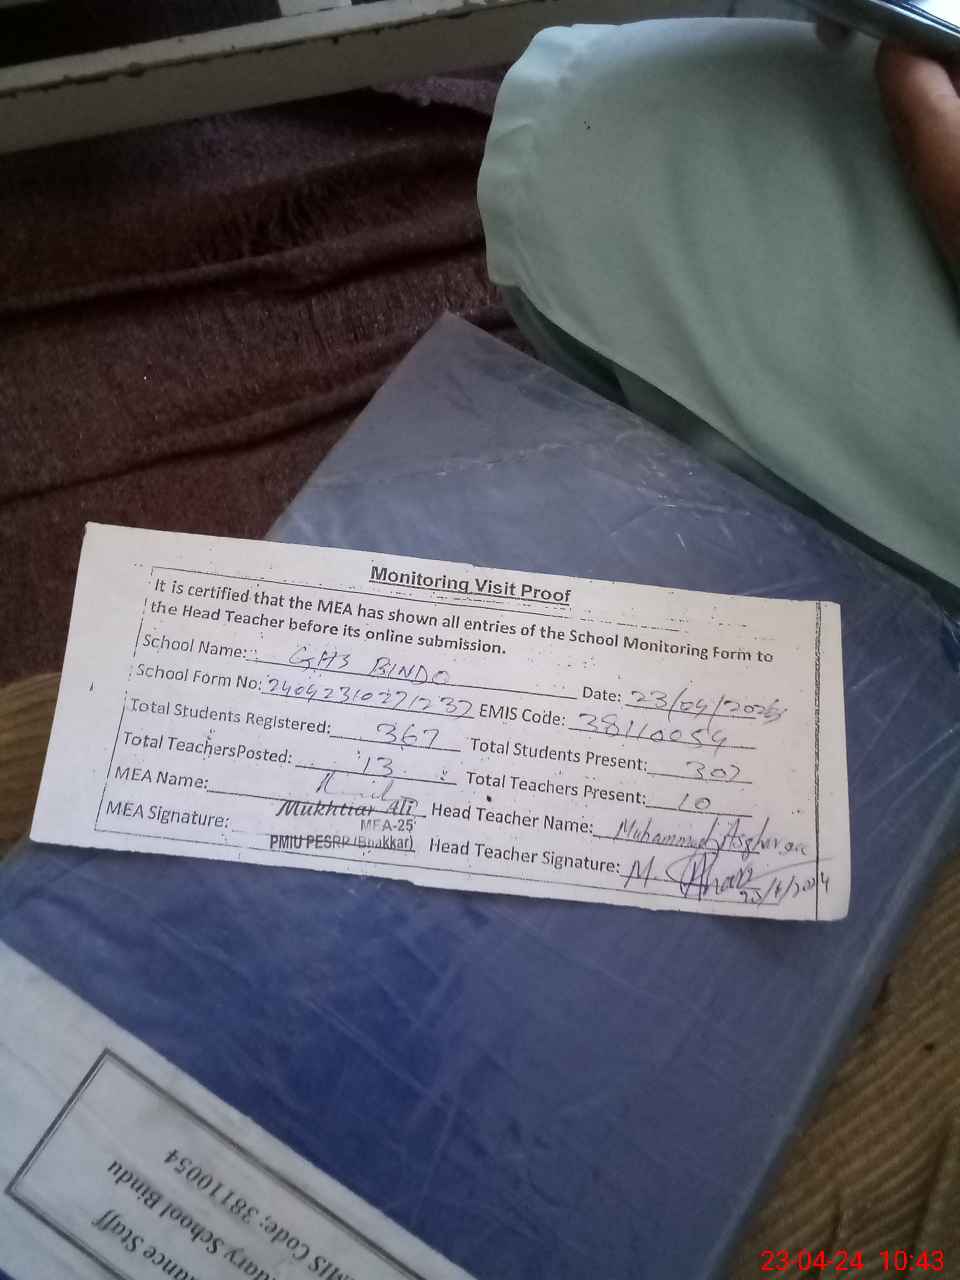 Monitoring Visit Proof
It is certified that the MEA has shown all entries of the School Monitoring Form to
the Head Teacher before its online submission.
School Name: GHS BINDO Date: 23/04/
School Form No: 24042310271237 EMIS Code: 38110054
Total Students Registered: 367 Total Students Present: 307
Total TeachersPosted: 13 Total Teachers Present: 10
MEA Name: Mukhtiar Ali Head Teacher Name: Muhammad
MEA-25
MEA Signature: PMIU PESRP (Bhakkar) Head Teacher Signature: M.
23/4/2024
ance Staff
dary School Bindu
MIS Code; 38110054
23-04-24 10:43